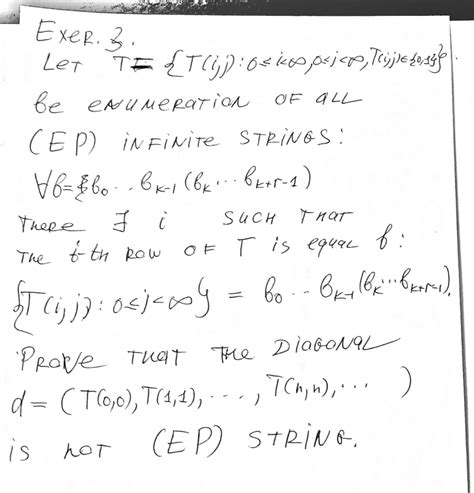 Exer. 3.
Let T = {T(i,j): 0≤i<∞, 0≤j<∞, T(i,j)∈{0,1}}
be enumeration of all
(EP) infinite strings:
∀b={b₀...b_{k-1}(b_k...b_{k+r-1})
There ∃ i such that
The i-th row of T is equal b:
{T(i,j): 0≤j<∞} = b₀...b_{k-1}(b_k...b_{k+r-1}).
Prove that the diagonal
d=(T(0,0),T(1,1),...,T(n,n),...)
is not (EP) string.